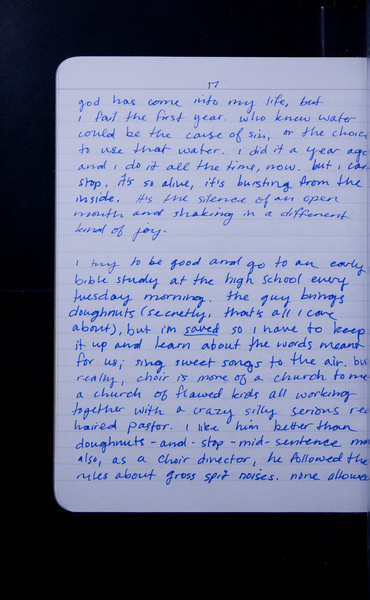 17
god has come into my life, but
i fail the first year. who knew water
could be the cause of sin, or the choice
to use that water. i did it a year ago
and i do it all the time, now. but i can
stop, it's so alive, it's bursting from the
inside. it's the silence of an open
mouth and shaking in a different
kind of joy.
i try to be good and go to an early
bible study at the high school every
tuesday morning. the guy brings
doughnuts (secretly, that's all i care
about), but i'm saved so i have to keep
it up and learn about the words meant
for us; sing sweet songs to the air. bu
really, choir is more of a church to me
a church of flawed kids all working
together with a crazy silly serious re
haired pastor. i like him better than
doughnuts-and-stop-mid-sentence
also, as a choir director, he followed the
rules about gross spit noises. none allowe